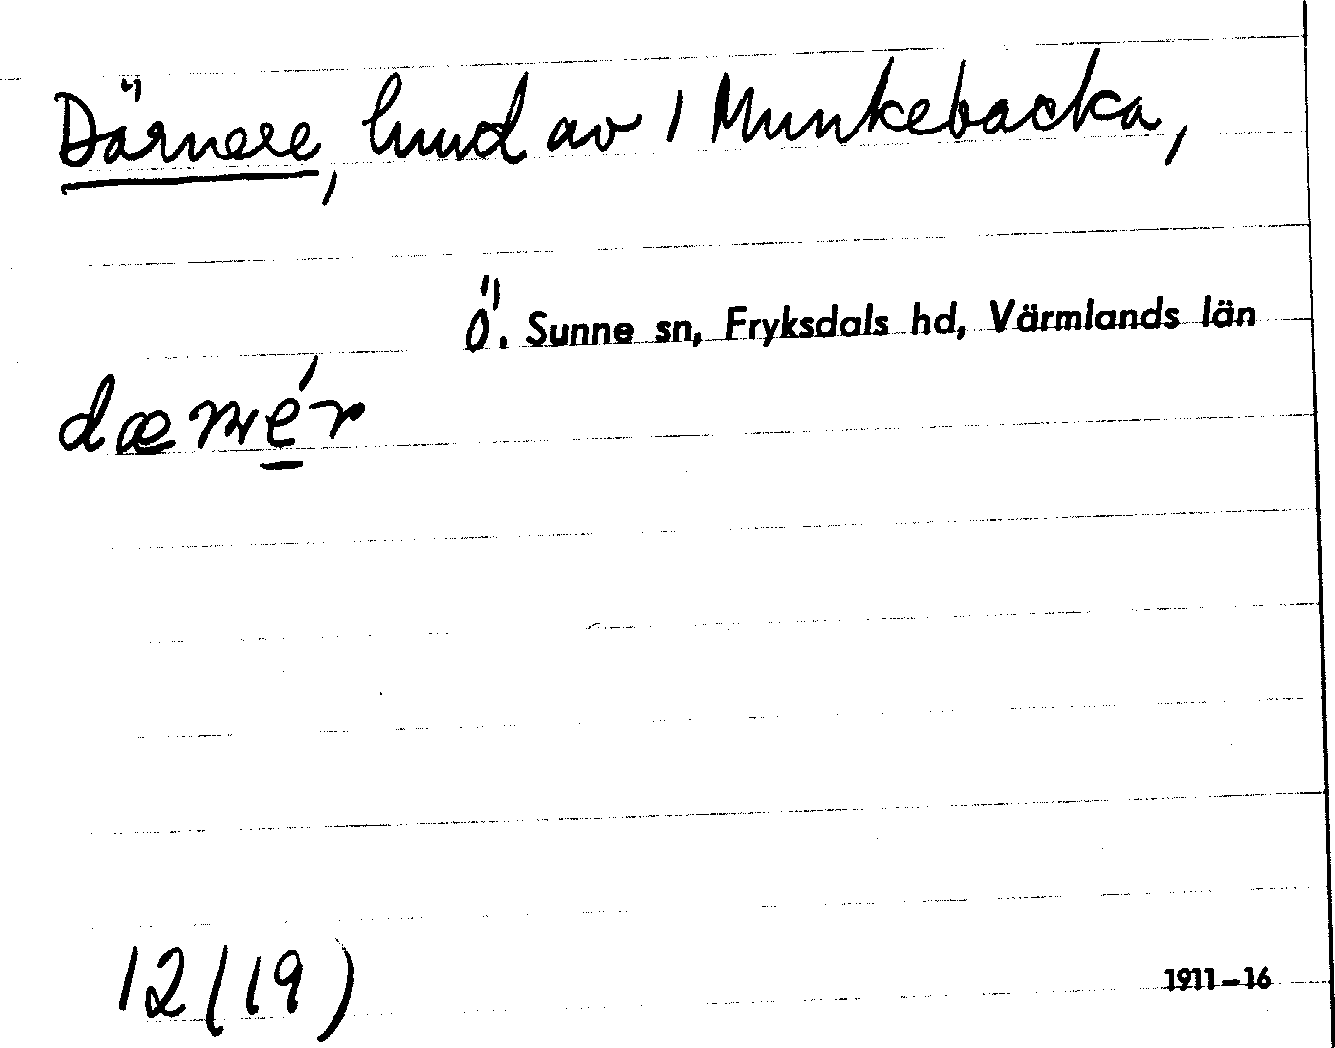 Därnere, hmd av 1 Munkebacka,
Ö. Sunne sn, Fryksdals hd, Värmlands län
12(19)
1911-16